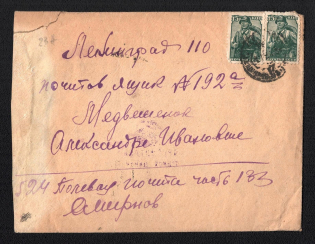 Ленинград 110
почтов ящик №192а
Медвешенок
Александре Ивановне
524 Полевая почта часть 133
Смирнов